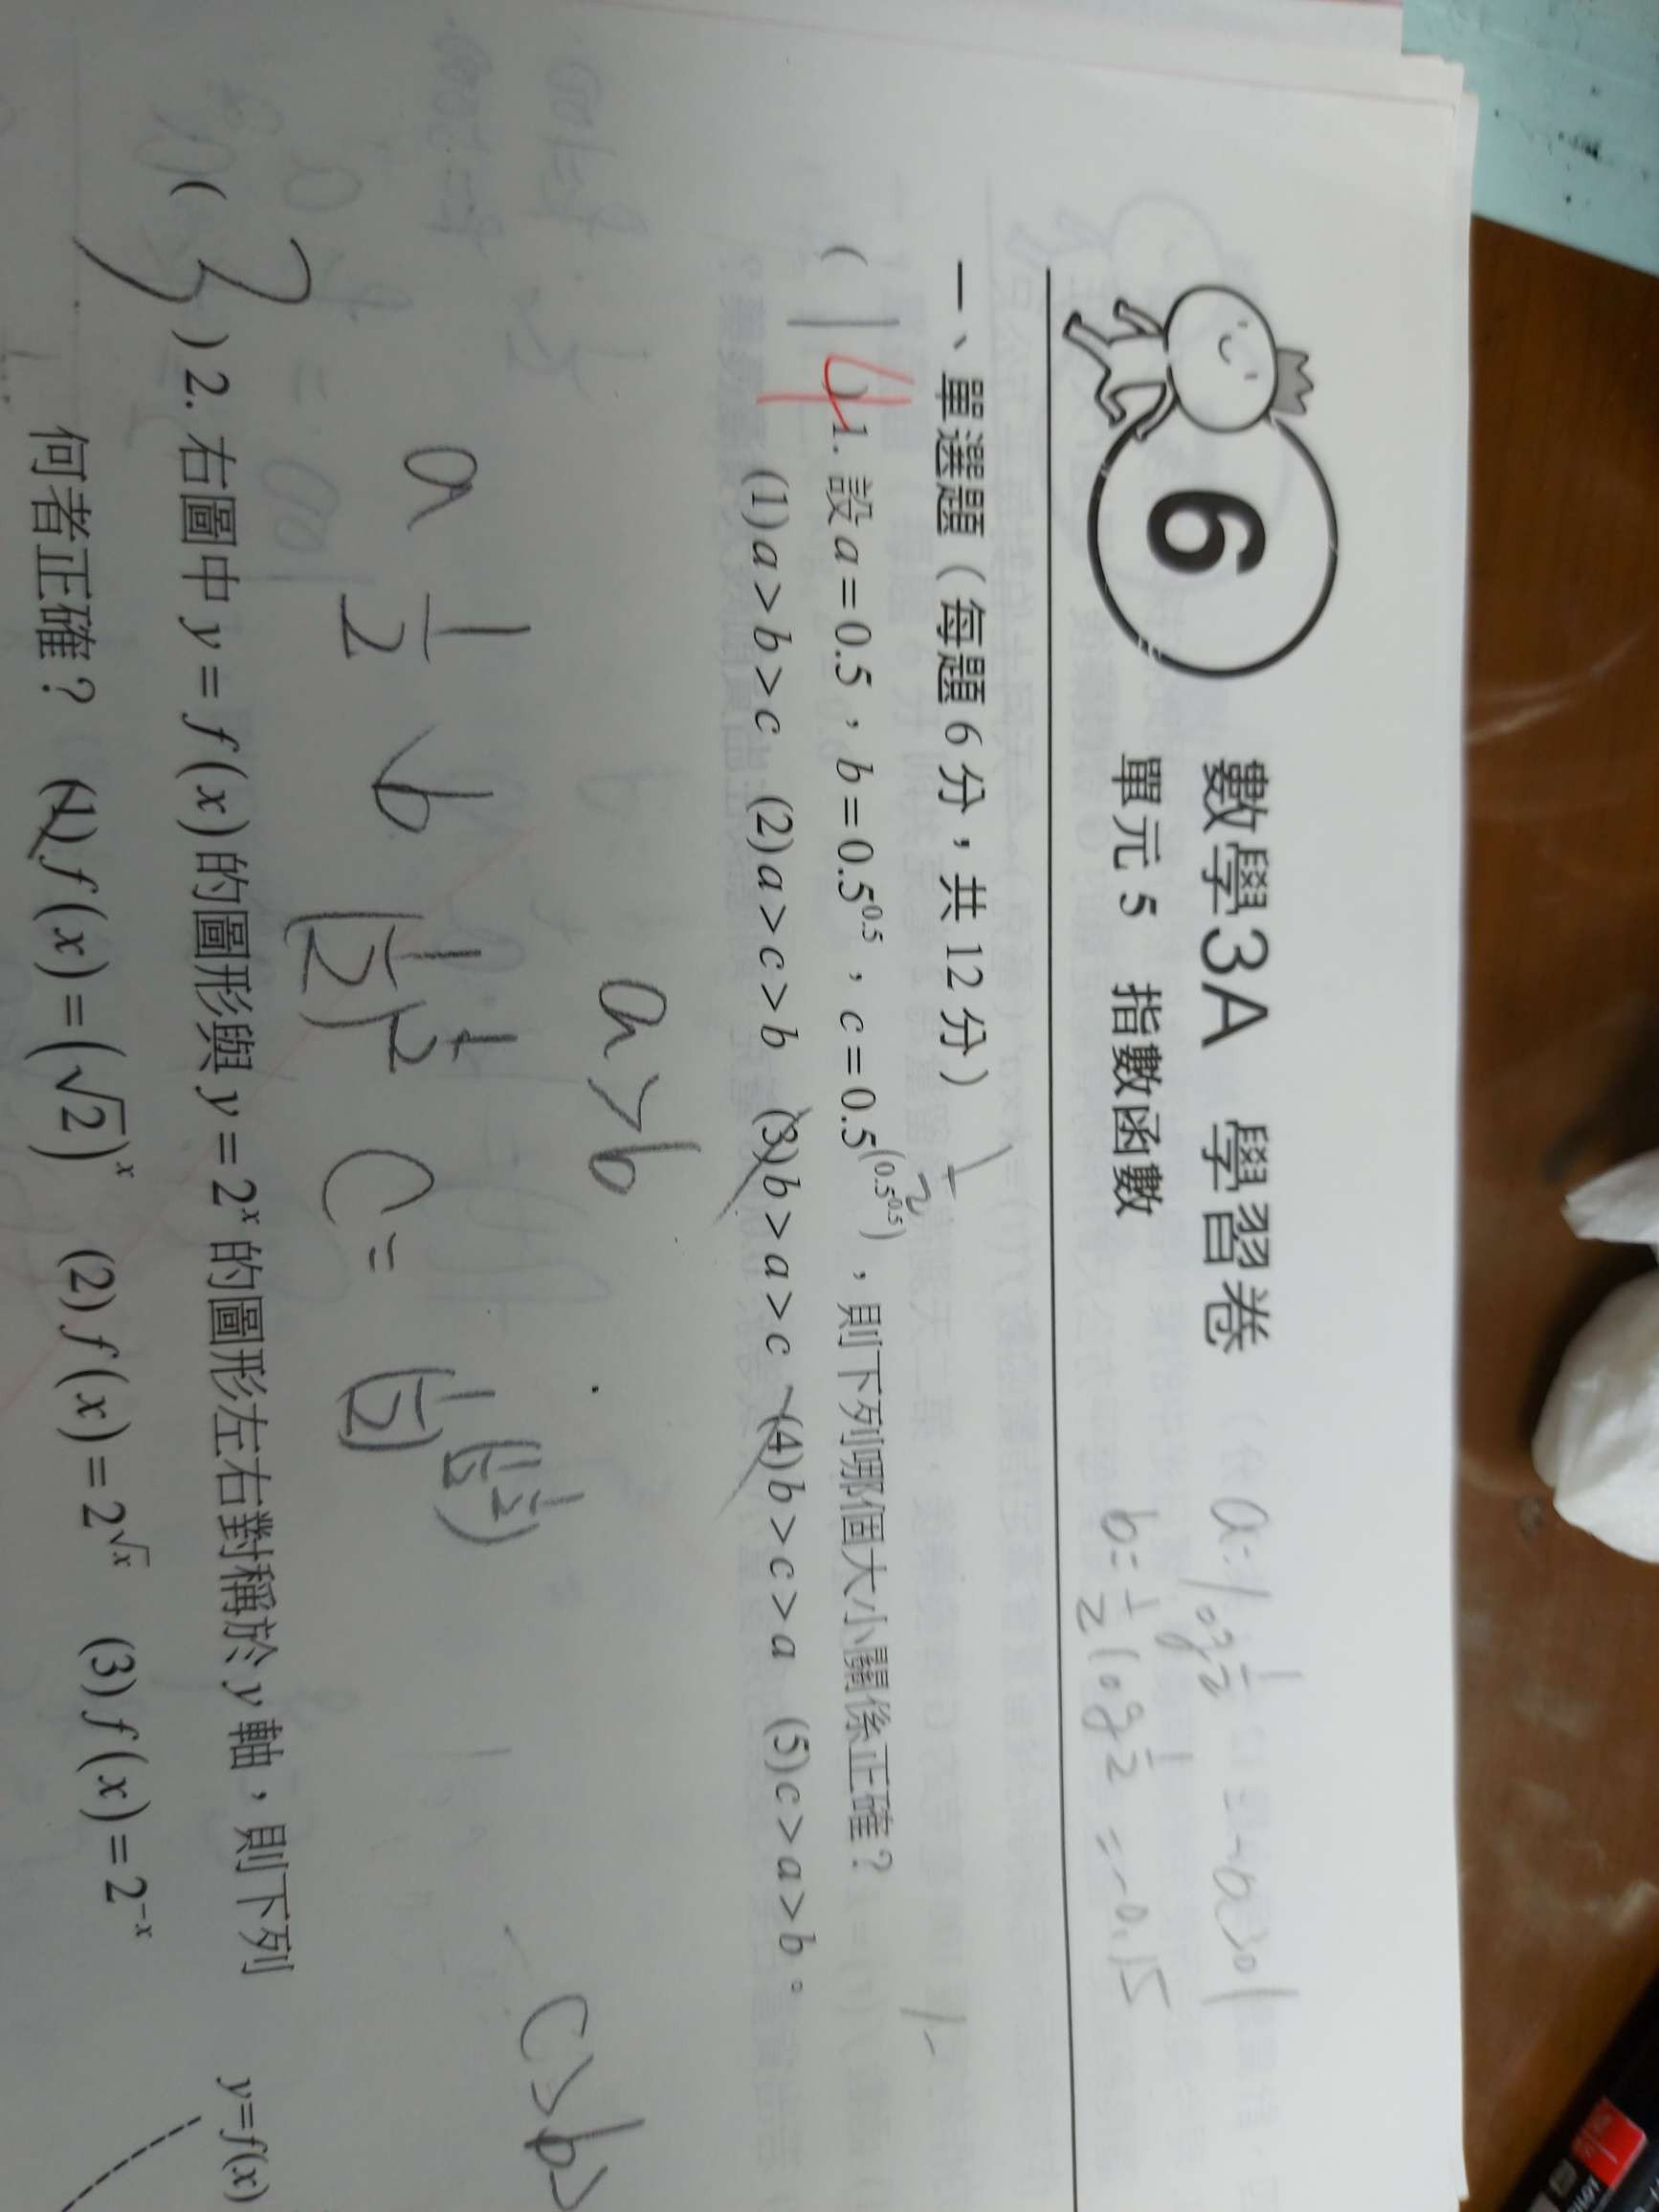 6
數學3A 學習卷
單元 5 指數函數
a: log 1/2
b = 1/2 log 1/2 = -0.15
一、單選題(每題 6 分,共 12 分)
( 1 ) 4 1. 設 a=0.5,b=0.5^0.5,c=0.5^(0.5^0.5),則下列哪個大小關係正確?
1/2
(1)a>b>c (2)a>c>b (3)b>a>c (4)b>c>a (5)c>a>b。
a>b
c>b>
a 1/2 b (1/2)^1/2 c= (1/2)^(1/2^1/2)
( 3 ) 2. 右圖中 y=f(x)的圖形與 y=2^x 的圖形左右對稱於 y 軸,則下列
何者正確? (1) f(x)=(√2)^x (2) f(x)=2^√x (3) f(x)=2^-x
y=f(x)